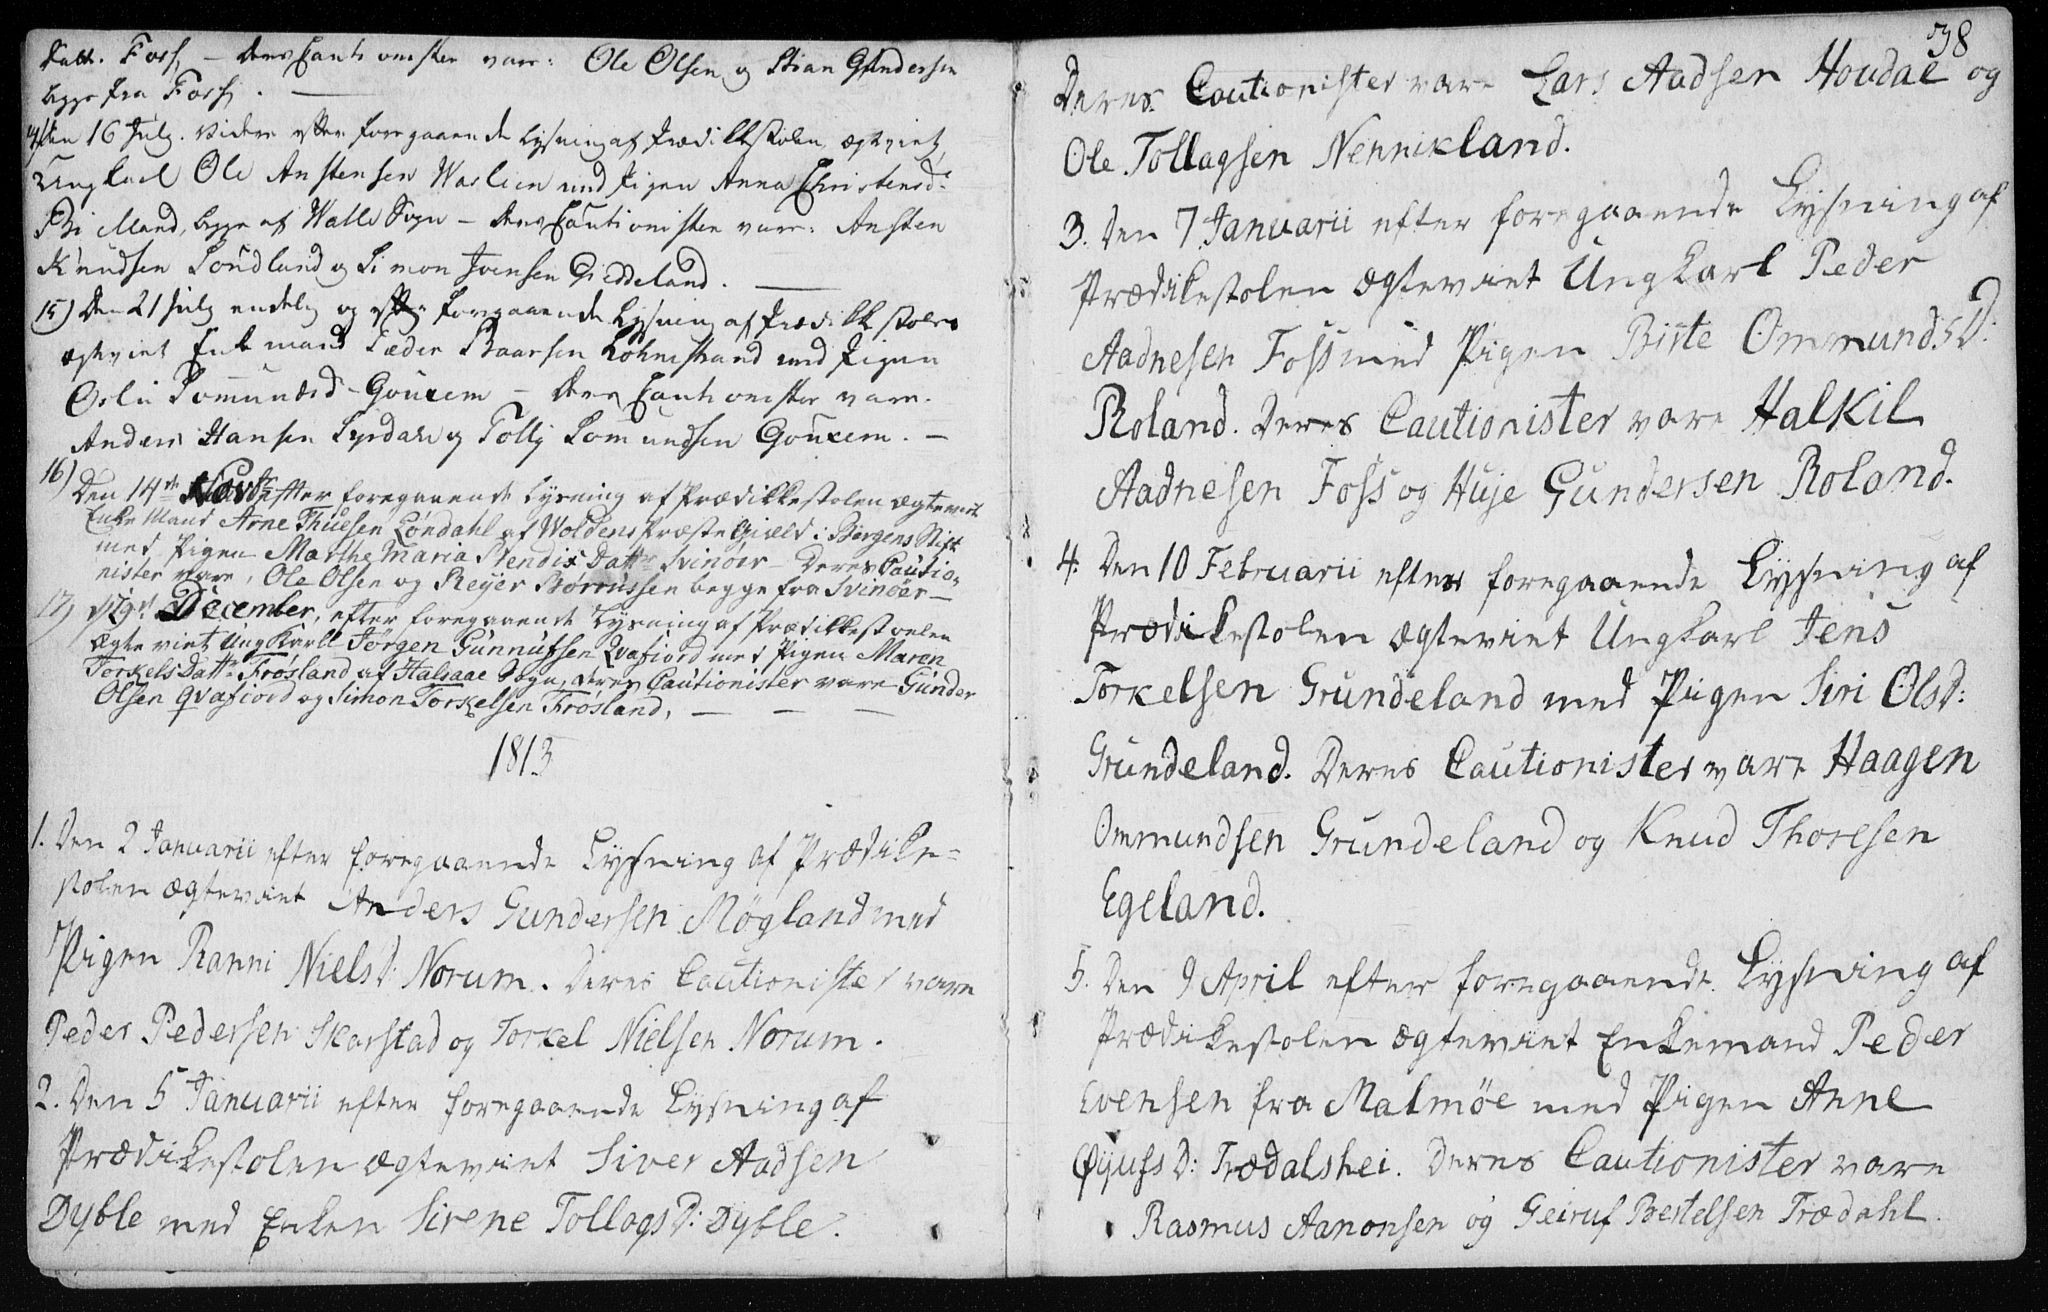 Datt. Foss, – deres Cautionister vare: Ole Olsen og Stian Gundersen
begge fra Foss. —
14) Den 16 July. videre efter foregaaende Lysning af Prædikestolen, ægteviet
Ungkarl Ole Anstensen Waslien med Pigen Anna Christensd:
Bie Mand, begge af Walle Sogn – deres Cautionister vare: Ansten
Knudsen Loudland og Simon Ivensen Gieddeland. —
15) Den 21 July endelig og efter foregaaende Lysning af Prædikestolen
ægteviet Enkemand Peder Baarsen Lohnestrand med Pigen
Oslu Lomunsd Gouxem – deres Cautionister vare.
Anders Hansen Lyrdahl og Tollj Lomundsen Gouxem. –
16) Den 14de Novbr efter foregaaende Lysning af Prædikkestolen ægteviet
Enke Mand Arne Thuesen Løndahl af Woldens Præste Gjæld i Bergens Stift
med Pigen Marthe Maria Stendix Dattr Svinöer – Deres Cautio-
nister vare, Ole Olsen og Reyer Börrussen begge fra Svinöer –
17) d 29de December, efter foregaaende Lysning af Prædikkestoelen
Ægte viet UngKarll Jørgen Gunnufsen Qvafiord med Pigen Maren
Torkels Dattr Frøsland af Halsaae Sogn, deres Cautionister vare Gunder
Olsen qvafiord og Simon Torkelsen Frøsland, — — —
1813
1. Den 2 Januarii efter foregaaende Lysning af Prædike-
stolen ægteviet Anders Gundersen Møgland med
Pigen Ranni NielsD: Norum. Deres Cautionister vare
Peder Pedersen Skarstad og Torkel Nielsen Norum.
2. Den 5 Januarii efter foregaaende Lysning af
Prædikestolen ægteviet Siver Aadsen
Dyble med Enken Sirene TollagsD: Dyble.
38
Deres Cautionister vare Lars Aadsen Houdae og
Ole Tollagsen Nennikland.
3. Den 7 Januarii efter foregaaende Lysning af
Prædikestolen ægteviet Ungkarl Peder
Aadnesen Foss med Pigen Birte OmmundsD:
Roland. Deres Cautionister vare Halkil
Aadnesen Foss og Huje Gundersen Roland.
4. Den 10 Februarii efter foregaaende Lysning af
Prædikestolen ægteviet Ungkarl Jens
Torkelsen Grundeland med Pigen Siri OlsD:
Grundeland. Deres Cautionister vare Haagen
Ommundsen Grundeland og Knud Thoresen
Egeland.
5. Den 9 April efter foregaaende Lysning af
Prædikestolen ægteviet Enkemand Peder
Evensen fra Malmöe med Pigen Anne
ØyufsD: Trædalshei. Deres Cautionister vare
Rasmus Aanonsen og Geiruf Bertelsen Trædahl.